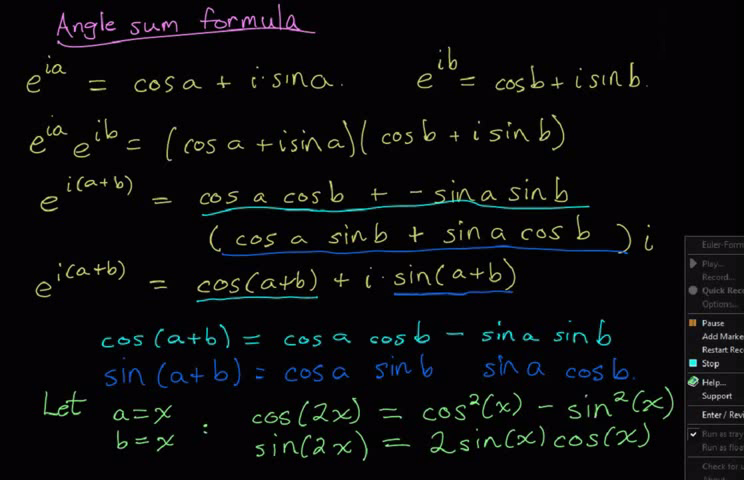 Angle sum formula
e^{ia} = cos a + i·sin a. e^{ib} = cos b + i sin b.
e^{ia} e^{ib} = (cos a + i sin a)(cos b + i sin b)
e^{i(a+b)} = cos a cos b + - sin a sin b
(cos a sin b + sin a cos b) i
e^{i(a+b)} = cos(a+b) + i·sin(a+b)
cos(a+b) = cos a cos b - sin a sin b
sin(a+b) = cos a sin b sin a cos b.
Let a=x : cos(2x) = cos²(x) - sin²(x)
b=x sin(2x) = 2 sin(x) cos(x)
Euler-Form
Play...
Record...
Quick Rec
Options...
Pause
Add Marke
Restart Rec
Stop
Help...
Support
Enter / Rev
Run as tray
Run as floa
Check for u